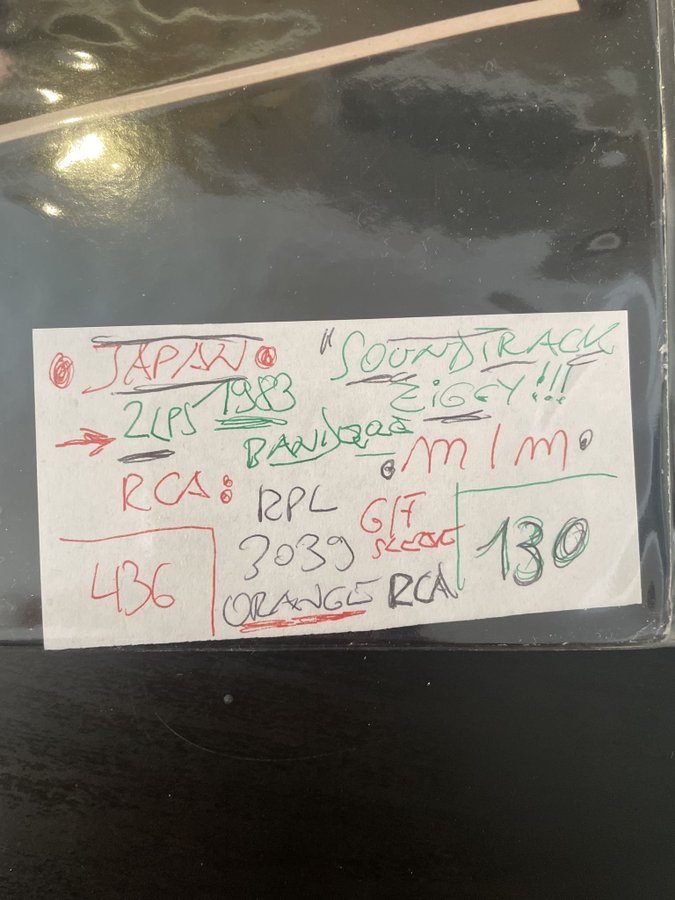 JAPAN "SOUNDTRACK
2LPS 1983 ZIGGY!!!
M/M
RCA: RPL G/F
3039 SLEEVE 130
436 ORANGE RCA